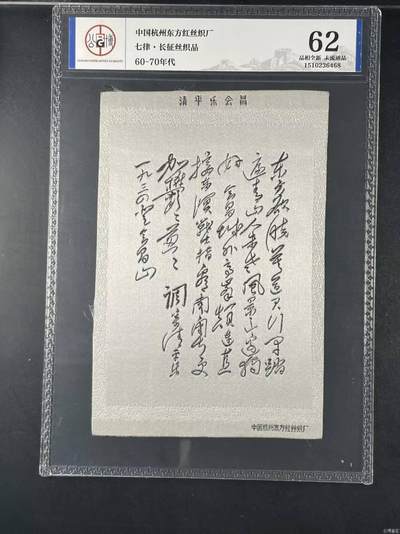 中国杭州东方红丝织厂
七律·长征丝织品
60-70年代
62
品相全新 未流通品
1510236468
清平乐会昌
东方欲晓莫道君行早踏
遍青山人未老风景这边独
好会昌城外高峰颠连直
接东溟战士指看南粤更
加欝〻葱〻 调寄清平乐
一九三四登会昌山
中国杭州东方红丝织厂